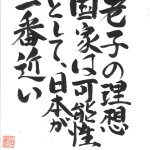 老子の理想
国家は可能性
として、日本が
一番近い